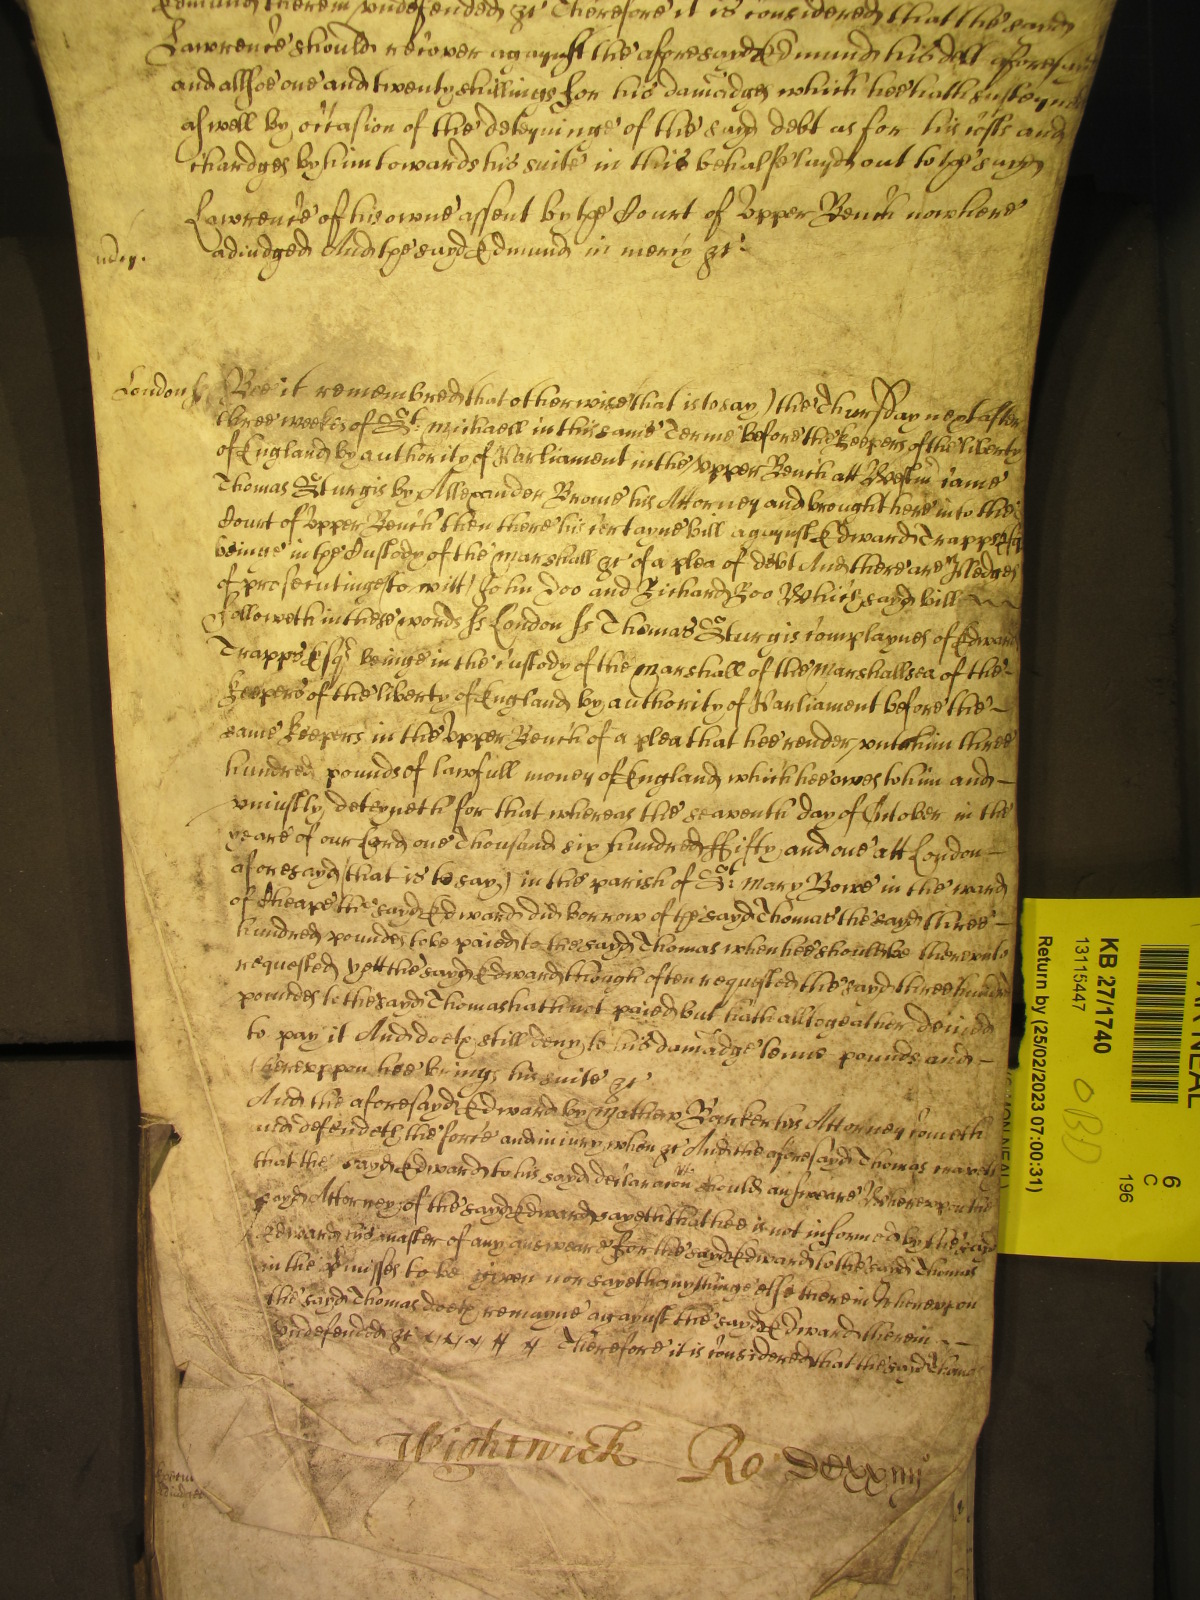 Edmund therein undefended &c Therefore it is considered that the sayd
Lawrence should recover agaynst the aforesayd Edmund his debt aforesayd
and allsoe one and twenty shillings for his damadges which hee hath susteyned
aswell by occasion of the deteyninge of the sayd debt as for his costs and
chardges by him towards his suite in this behalfe layd out to the sayd
Lawrence of his owne assent by the Court of Upper Bench now here
adiudged And the sayd Edmund in mercy &c
London ss Bee it remembred that otherwise that is to say) the Thursday next after
three weekes of St Michaell in this same Terme before the keepers of the liberty
of England by authority of Parliament in the Upper Bench att Westm came
Thomas Sturgis by Allexander Brome his Attorney and brought here into the
Court of Upper Bench then there his certayne bill agaynst Edward Trapps Esqr
beinge in the Custody of the Marshall &c of a plea of debt And there are Pledges
of prosecutinge to witt John Doo and Richard Roo Which sayd bill
followeth in these words ss London ss Thomas Sturgis complaynes of Edward
Trapps Esqr beinge in the custody of the Marshall of the Marshallsea of the
keepers of the liberty of England by authority of Parliament before the
same keepers in the Upper Bench of a plea that hee render unto him three
hundred pounds of lawfull money of England which hee owes to him and
uniustly deteyneth for that whereas the seaventh day of October in the
yeare of our Lord one Thousand six hundred ffifty and one att London
aforesayd (that is to say) in the parish of St Mary Bowe in the ward
of Cheape the sayd Edward did borrow of the sayd Thomas the sayd three
hundred poundes to be paied to the sayd Thomas when hee should be thereunto
requested yett the sayd Edward though often requested the sayd three hundred
poundes to the sayd Thomas hath not paied but hath alltogeather denied
to pay it And doeth still deny to his damadge tenne pounds and
thereuppon hee brings his suite &c
And the aforesayd Edward by Mathew Barker his Attorney cometh
and defendeth the force and iniury when &c And the aforesayd Thomas craveth
that the sayd Edward to his sayd declaracion should answeare Whereupon the
sayd Attorney of the sayd Edward sayeth that hee is not informed by the sayd
Edward his master of any answeare for the sayd Edward to the sayd Thomas
in the premisses to be given nor sayeth any thinge else therein Whereupon
the sayd Thomas doeth remayne agaynst the sayd Edward therein
Undefended &c Therefore it is considered that the sayd Thomas
Wightwick Ro
KB 27/1740
13115447
Return by (25/02/2023 07:00:31)
6
C
196